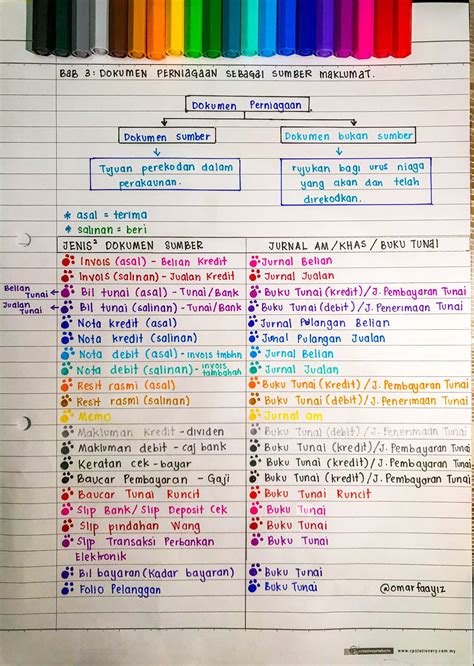 BAB 3: DOKUMEN PERNIAGAAN SEBAGAI SUMBER MAKLUMAT.
Dokumen Perniagaan
Dokumen sumber
Dokumen bukan sumber
Tujuan perekodan dalam
perakaunan.
rujukan bagi urus niaga
yang akan dan telah
direkodkan.
* asal = terima
* salinan = beri
JENIS² DOKUMEN SUMBER JURNAL AM/KHAS / BUKU TUNAI
Invois (asal) - Belian Kredit Jurnal Belian
Invois (salinan) - Jualan Kredit Jurnal Jualan
Belian Tunai Bil tunai (asal) - Tunai/Bank Buku Tunai (kredit)/J. Pembayaran Tunai
Jualan Tunai Bil tunai (salinan) - Tunai/Bank Buku Tunai (debit)/J. Penerimaan Tunai
Nota kredit (asal) Jurnal Pulangan Belian
Nota kredit (salinan) Jurnal Pulangan Jualan
Nota debit (asal) - invois tmbhn Jurnal Belian
Nota debit (salinan) - invois tambahan Jurnal Jualan
Resit rasmi (asal) Buku Tunai (kredit)/J. Pembayaran Tunai
Resit rasmi (salinan) Buku Tunai (debit)/J. Penerimaan Tunai
Memo Jurnal am
Makluman Kredit - dividen Buku Tunai (debit)/J. Penerimaan Tunai
Makluman debit - caj bank Buku Tunai (kredit)/J. Pembayaran Tunai
Keratan cek - bayar Buku Tunai (kredit)/J. Pembayaran Tunai
Baucar Pembayaran - Gaji Buku Tunai (kredit)/J. Pembayaran Tunai
Baucar Tunai Runcit Buku Tunai Runcit
Slip Bank/ Slip Deposit Cek Buku Tunai
Slip pindahan Wang Buku Tunai
Slip Transaksi Perbankan Buku Tunai
Elektronik
Bil bayaran (Kadar bayaran) Buku Tunai
Folio Pelanggan Buku Tunai
@omarfaayiz
creativeproducts www.cpstationery.com.my